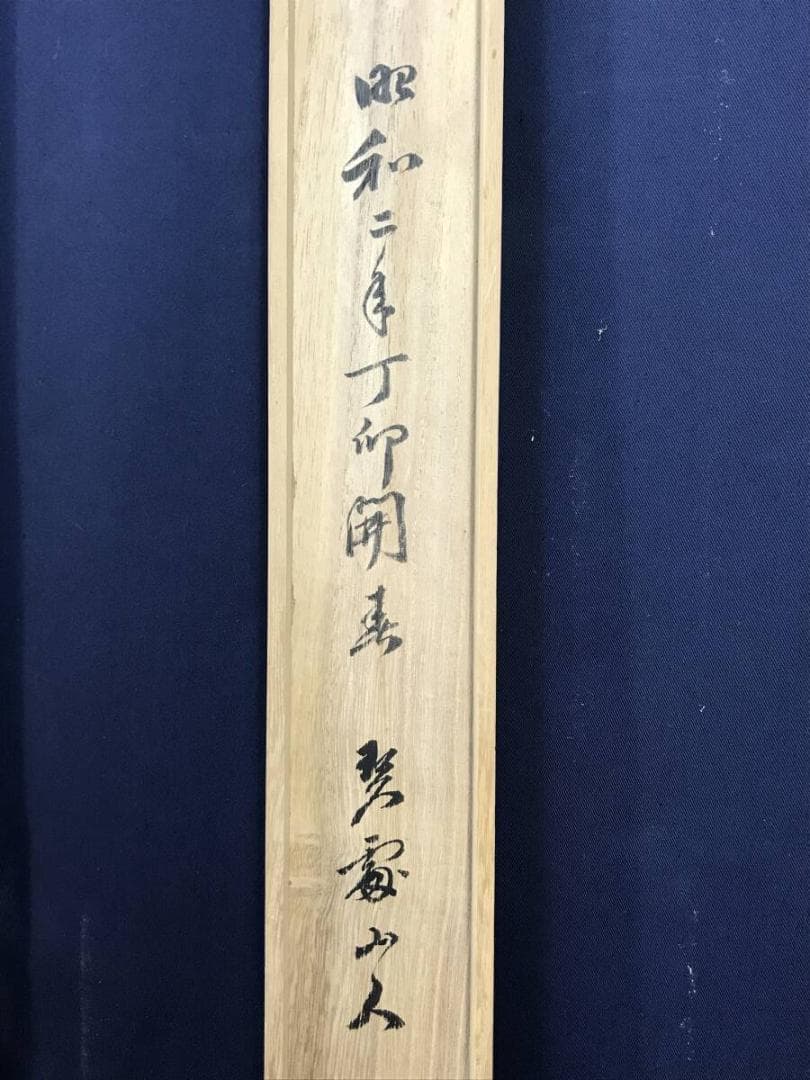 昭和二年丁卯開春
山人